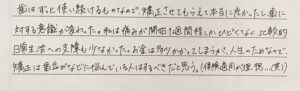 歯はずっと使い続けるものなので、矯正させてもらえて本当に良かったし歯に
対する意識が変わった。私は痛みが開始1週間程しかひどくなく、比較的
日常生活への支障も少なかった。お金は かかってしまうが、人生のためなので、
矯正は歯並びなどに悩んでいる人はするべきだと思う。(保険適用が理想…(笑))